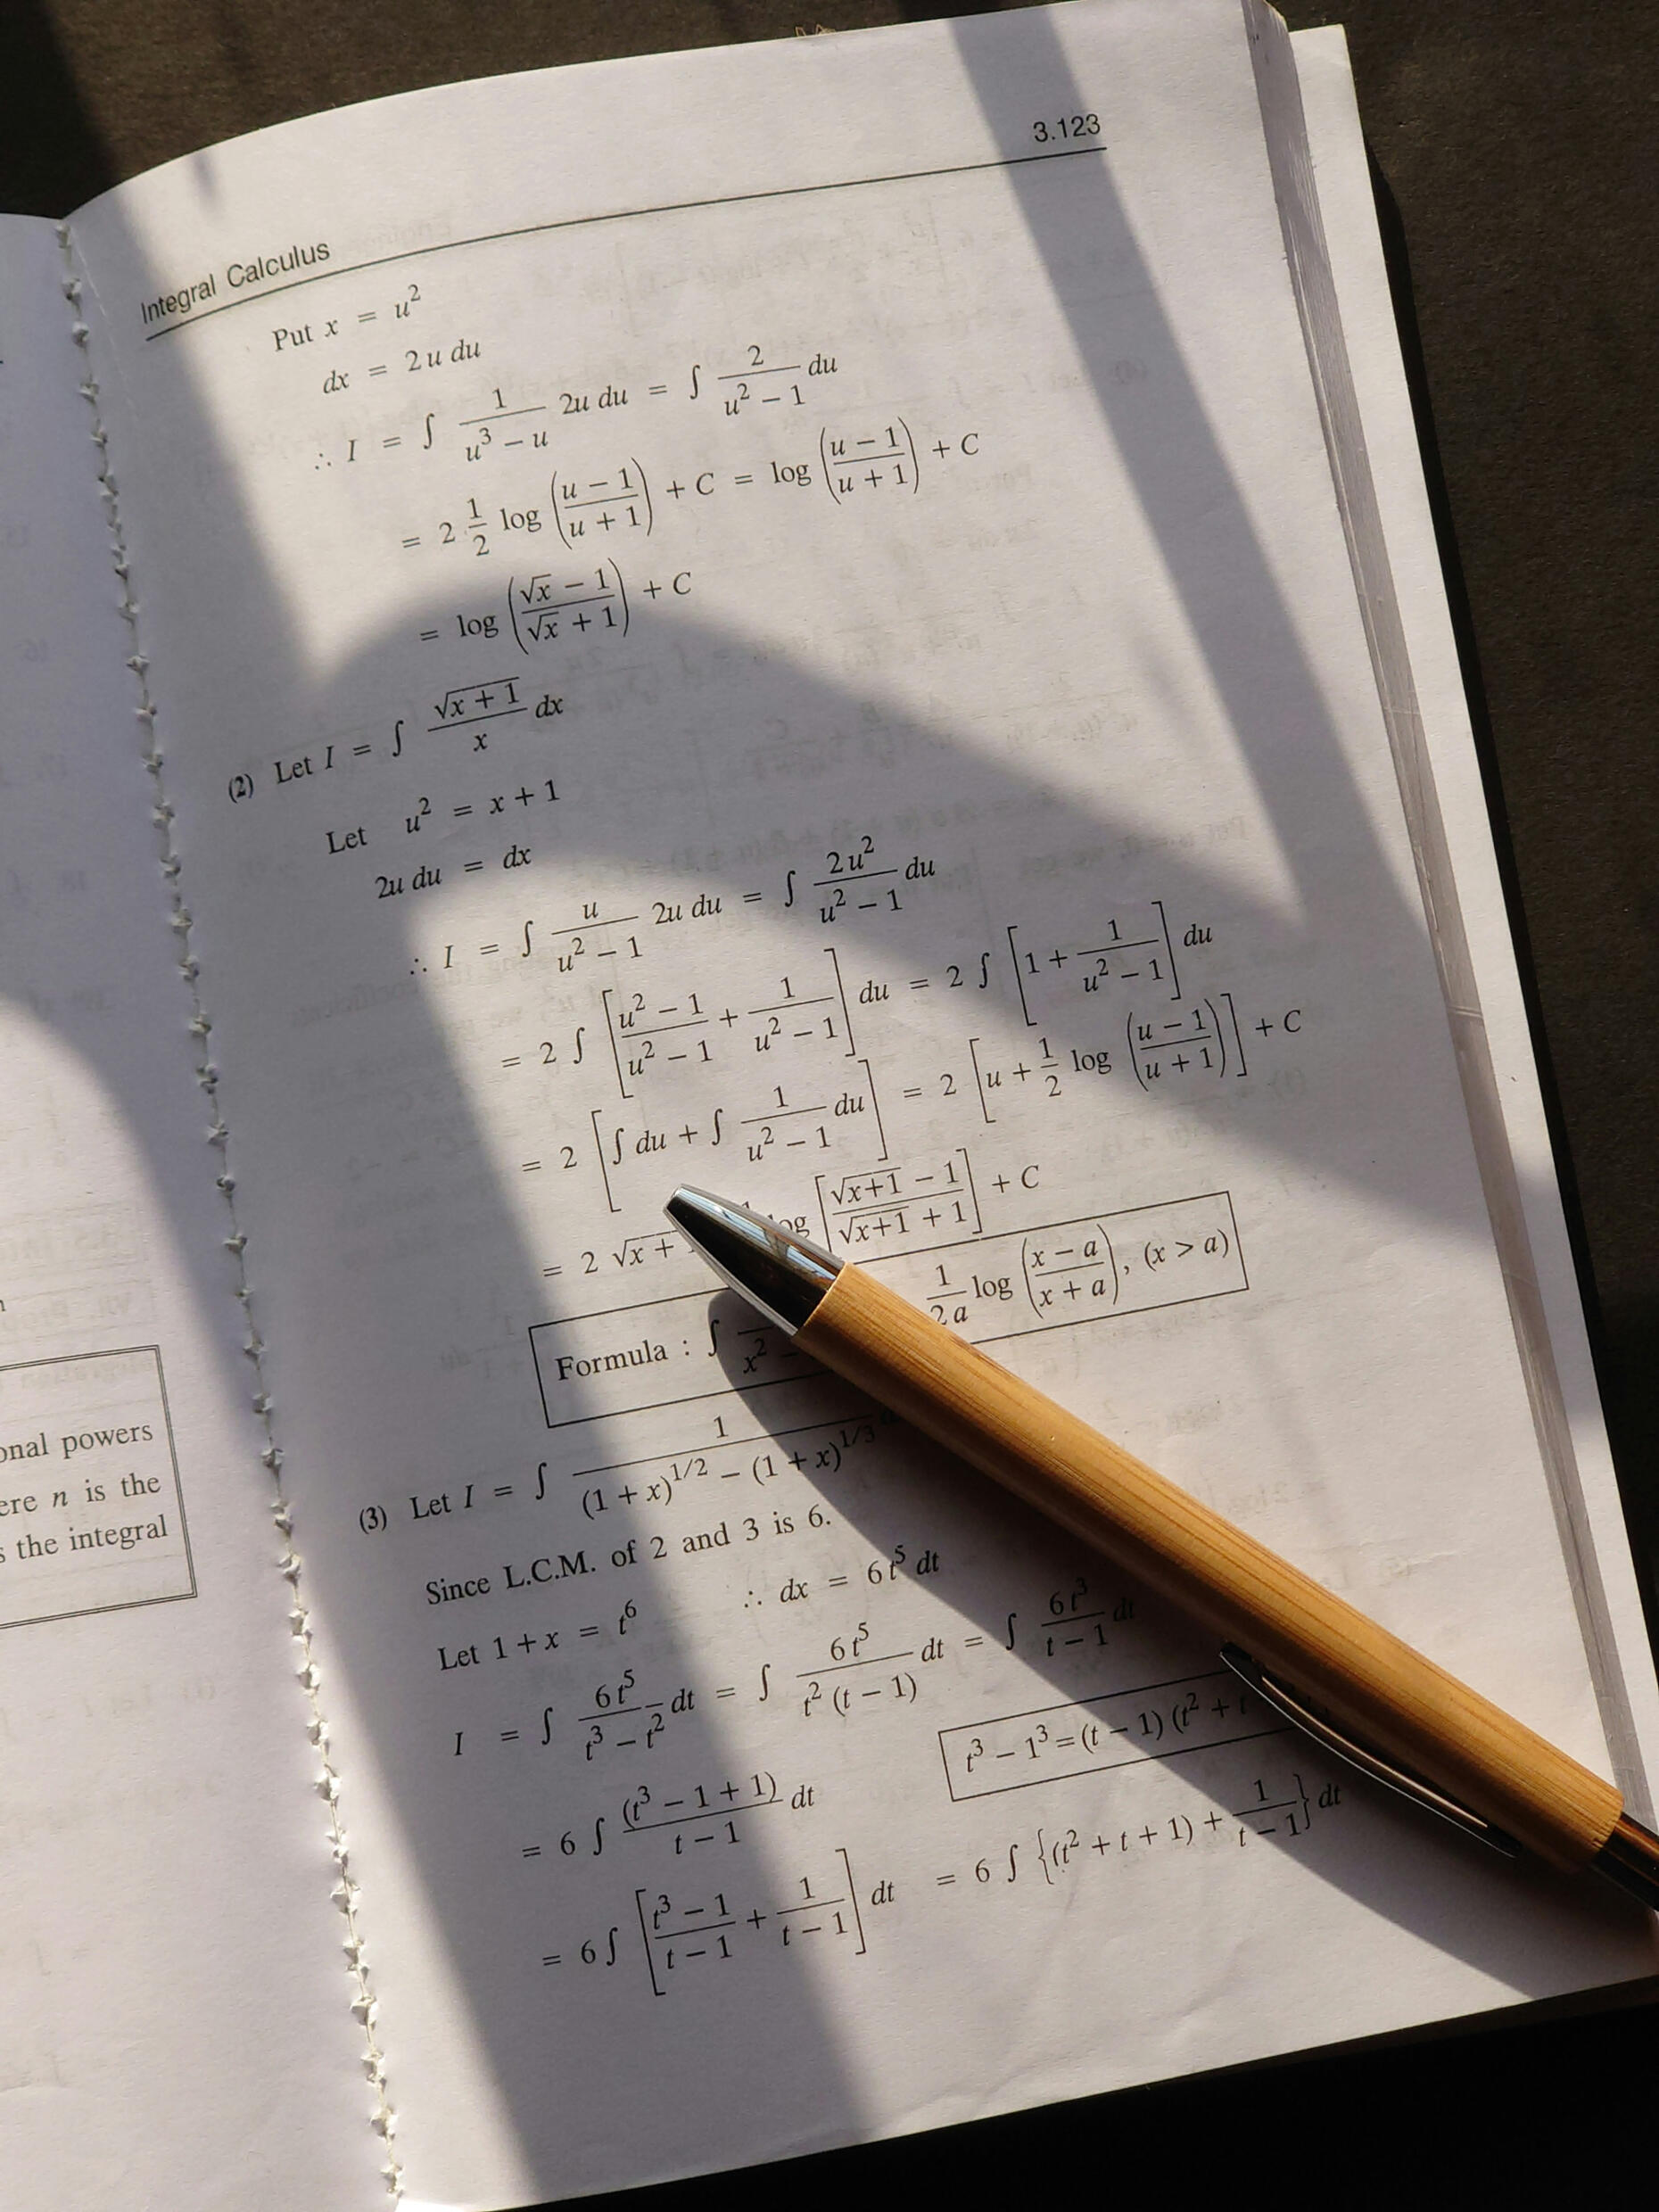 3.123
Integral Calculus
Put x = u²
dx = 2u du
∴ I = ∫ 1/(u³ − u) 2u du = ∫ 2/(u² − 1) du
= 2 · 1/2 log ((u − 1)/(u + 1)) + C = log ((u − 1)/(u + 1)) + C
= log ((√x − 1)/(√x + 1)) + C
(2) Let I = ∫ √(x + 1)/x dx
Let u² = x + 1
2u du = dx
∴ I = ∫ u/(u² − 1) 2u du = ∫ 2u²/(u² − 1) du
= 2 ∫ [(u² − 1)/(u² − 1) + 1/(u² − 1)] du = 2 ∫ [1 + 1/(u² − 1)] du
= 2 [∫ du + ∫ 1/(u² − 1) du] = 2 [u + 1/2 log ((u − 1)/(u + 1))] + C
= 2 √x + log [(√(x+1) − 1)/(√(x+1) + 1)] + C
Formula : ∫ x² − 1/(2a) log ((x − a)/(x + a)), (x > a)
(3) Let I = ∫ 1/((1 + x)^(1/2) − (1 + x)^(1/3))
Since L.C.M. of 2 and 3 is 6.
Let 1 + x = t⁶ ∴ dx = 6t⁵ dt
I = ∫ 6t⁵/(t³ − t²) dt = ∫ 6t⁵/(t² (t − 1)) dt = ∫ 6t³/(t − 1) dt
t³ − 1³ = (t − 1) (t² + t
= 6 ∫ (t³ − 1 + 1)/(t − 1) dt
= 6 ∫ [(t³ − 1)/(t − 1) + 1/(t − 1)] dt = 6 ∫ {(t² + t + 1) + 1/(t − 1)} dt
onal powers
ere n is the
s the integral